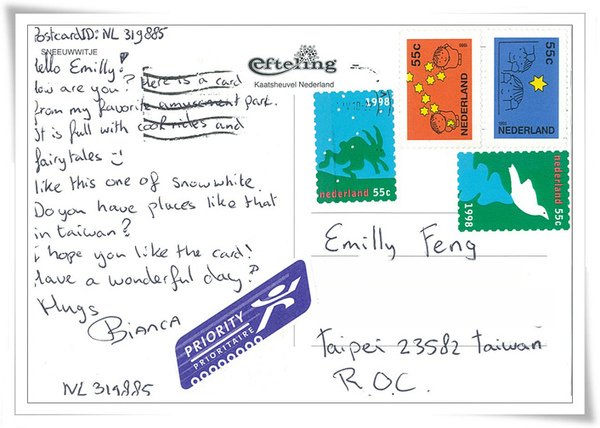 PostcardID: NL 319885
SNEEUWWITJE
Hello Emilly!
How are you? Here is a card
from my favorite amusement park.
It is full with cool rides and
fairytales :)
like this one of snowwhite.
Do you have places like that
in taiwan?
i hope you like the card!
Have a wonderful day!
Hugs
Bianca
NL 319885
efteling
Kaatsheuvel Nederland
55c
1995
NEDERLAND
55c
1995
NEDERLAND
1998
nederland 55c
nederland
1998
55c
Emilly Feng
Taipei 23582 taiwan
R.O.C.
PRIORITY
PRIORITAIRE